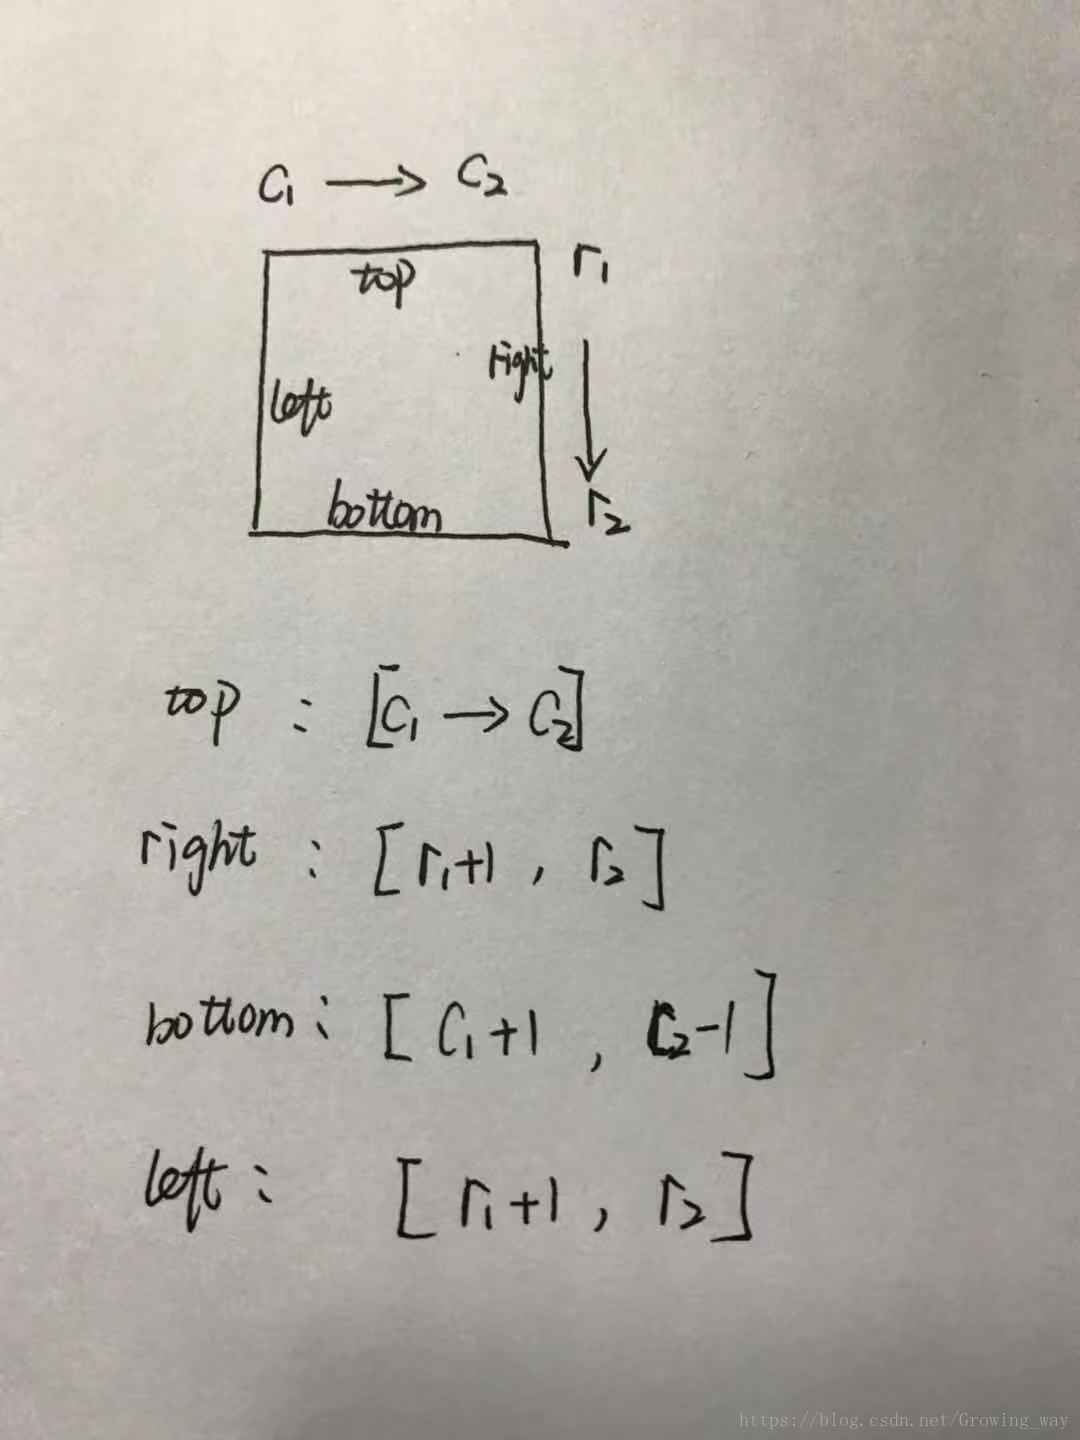 C₁ → C₂
top
r₁
right
left
bottom
r₂
top : [C₁ → C₂]
right : [r₁+1 , r₂]
bottom : [C₁+1 , C₂-1]
left : [r₁+1 , r₂]
https://blog.csdn.net/Growing_way